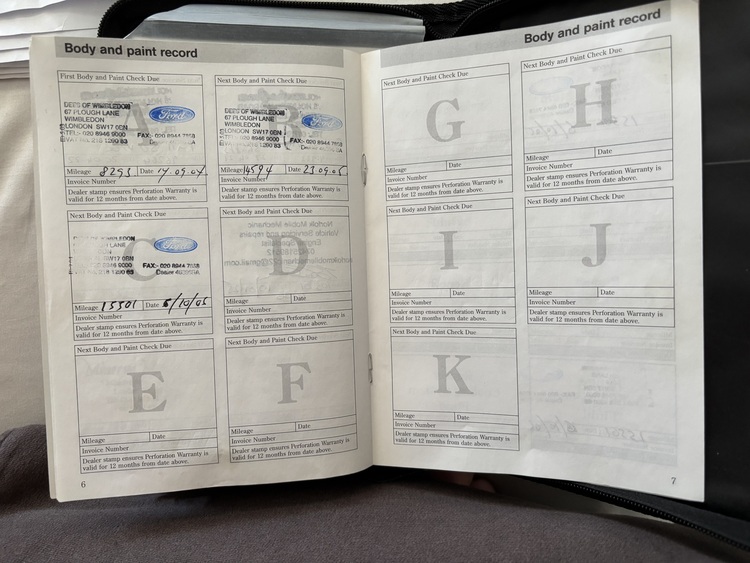 Body and paint record
First Body and Paint Check Due
DEES OF WIMBLEDON
67 PLOUGH LANE
WIMBLEDON
LONDON SW17 0BN
TEL:- 020 8946 9000 FAX:- 020 8944 7558
Ford
Mileage 8293 Date 17.09.04
Invoice Number
Dealer stamp ensures Perforation Warranty is
valid for 12 months from date above.
Next Body and Paint Check Due
DEES OF WIMBLEDON
67 PLOUGH LANE
WIMBLEDON
LONDON SW17 0BN
TEL:- 020 8946 9000 FAX:- 020 8944 7558
Ford
Mileage 14594 Date 23.09.05
Invoice Number
Dealer stamp ensures Perforation Warranty is
valid for 12 months from date above.
Next Body and Paint Check Due
C
DEES OF WIMBLEDON
LANE
SW17 0BN
8946 9000 FAX:- 020 8944 7558
Ford
Mileage 15501 Date 5/10/05
Invoice Number
Dealer stamp ensures Perforation Warranty is
valid for 12 months from date above.
Next Body and Paint Check Due
D
Mileage Date
Invoice Number
Dealer stamp ensures Perforation Warranty is
valid for 12 months from date above.
Next Body and Paint Check Due
E
Mileage Date
Invoice Number
Dealer stamp ensures Perforation Warranty is
valid for 12 months from date above.
Next Body and Paint Check Due
F
Mileage Date
Invoice Number
Dealer stamp ensures Perforation Warranty is
valid for 12 months from date above.
6
Body and paint record
Next Body and Paint Check Due
G
Mileage Date
Invoice Number
Dealer stamp ensures Perforation Warranty is
valid for 12 months from date above.
Next Body and Paint Check Due
H
Mileage Date
Invoice Number
Dealer stamp ensures Perforation Warranty is
valid for 12 months from date above.
Next Body and Paint Check Due
I
Mileage Date
Invoice Number
Dealer stamp ensures Perforation Warranty is
valid for 12 months from date above.
Next Body and Paint Check Due
J
Mileage Date
Invoice Number
Dealer stamp ensures Perforation Warranty is
valid for 12 months from date above.
Next Body and Paint Check Due
K
Mileage Date
Invoice Number
Dealer stamp ensures Perforation Warranty is
valid for 12 months from date above.
7